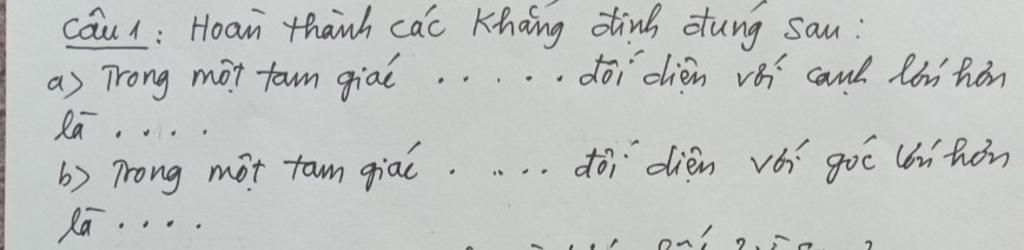 Câu 1: Hoàn thành các khẳng định đúng sau:
a) Trong một tam giác ..... đối diện với cạnh lớn hơn
là ....
b) Trong một tam giác ..... đối diện với góc lớn hơn
là ....